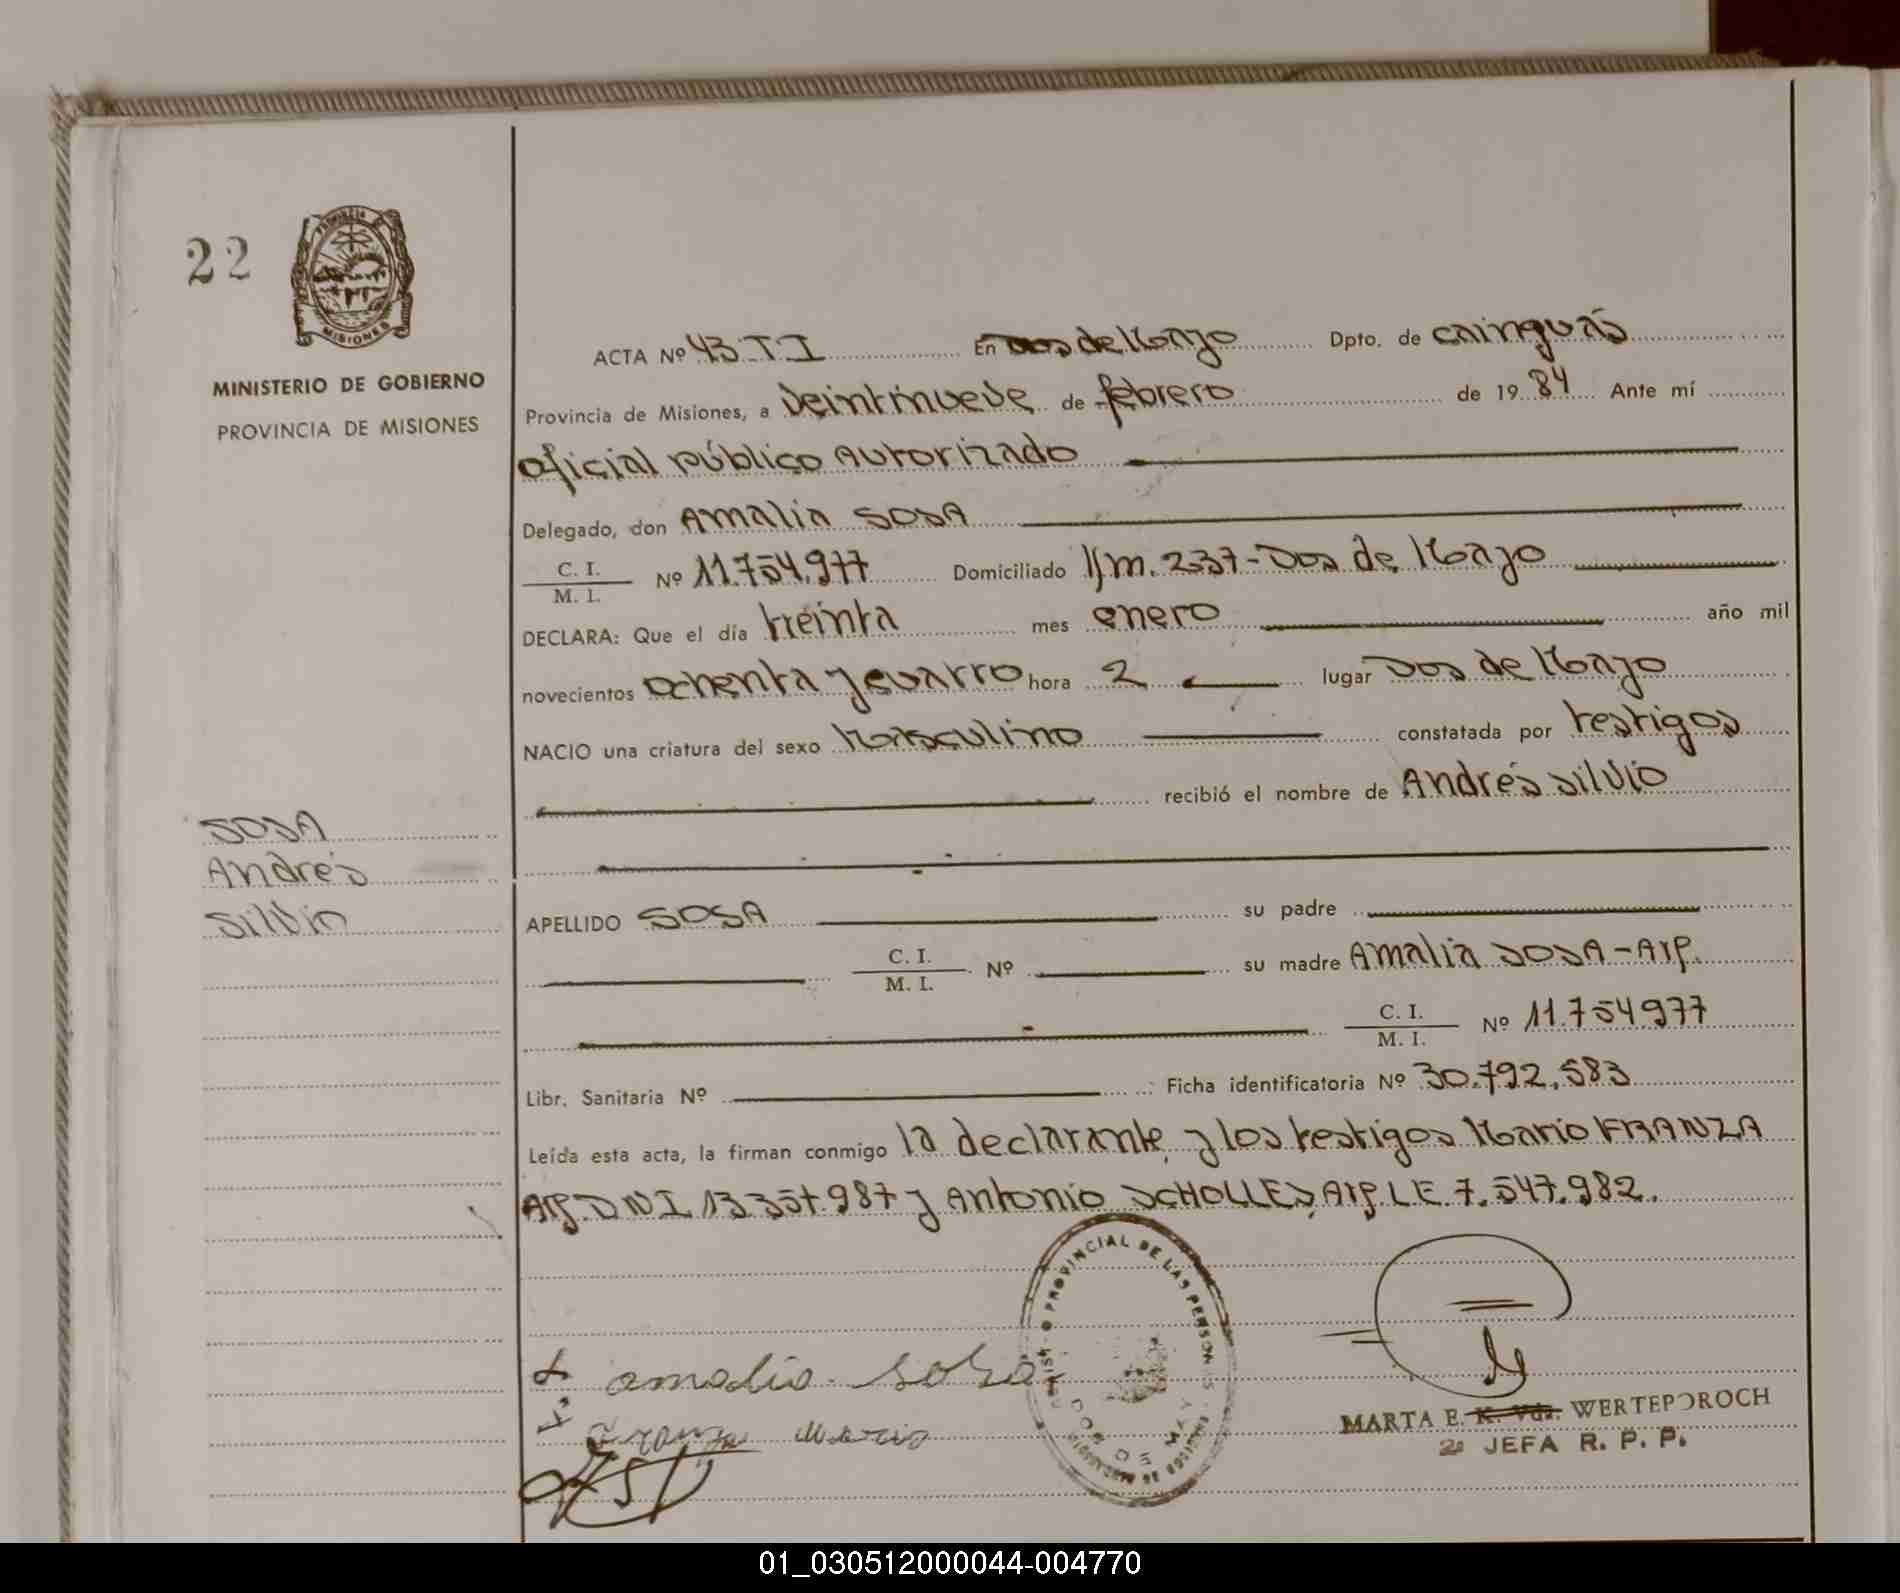 22
PROVINCIA
MISIONES
MINISTERIO DE GOBIERNO
PROVINCIA DE MISIONES
ACTA Nº 43.TI En Dos de Mayo Dpto. de Cainguás
Provincia de Misiones, a Veintinueve de febrero de 1984 Ante mí
Oficial Público Autorizado
Delegado, don Amalia SOSA
C. I. / M. I. Nº 11.754.977 Domiciliado Km. 237-Dos de Mayo
DECLARA: Que el día treinta mes enero año mil
novecientos ochenta y cuatro hora 2 lugar Dos de Mayo
NACIO una criatura del sexo Masculino constatada por testigos
recibió el nombre de Andrés Silvio
SOSA
Andrés
Silvio
APELLIDO SOSA su padre
C. I. / M. I. Nº su madre Amalia SOSA-Arg.
C. I. / M. I. Nº 11.754977
Libr. Sanitaria Nº Ficha identificatoria Nº 30.792.583
Leída esta acta, la firman conmigo la declarante y los testigos Mario FRANZA
Arg. DNI 13.357.987 y Antonio SCHOLLES, Arg. LE 7.547.982.
PROVINCIAL DE LAS PERSONAS
DOS DE MAYO
amalia sosa
Franza Mario
MARTA E. K. Vda. WERTEPOROCH
2ª JEFA R. P. P.
01_030512000044-004770